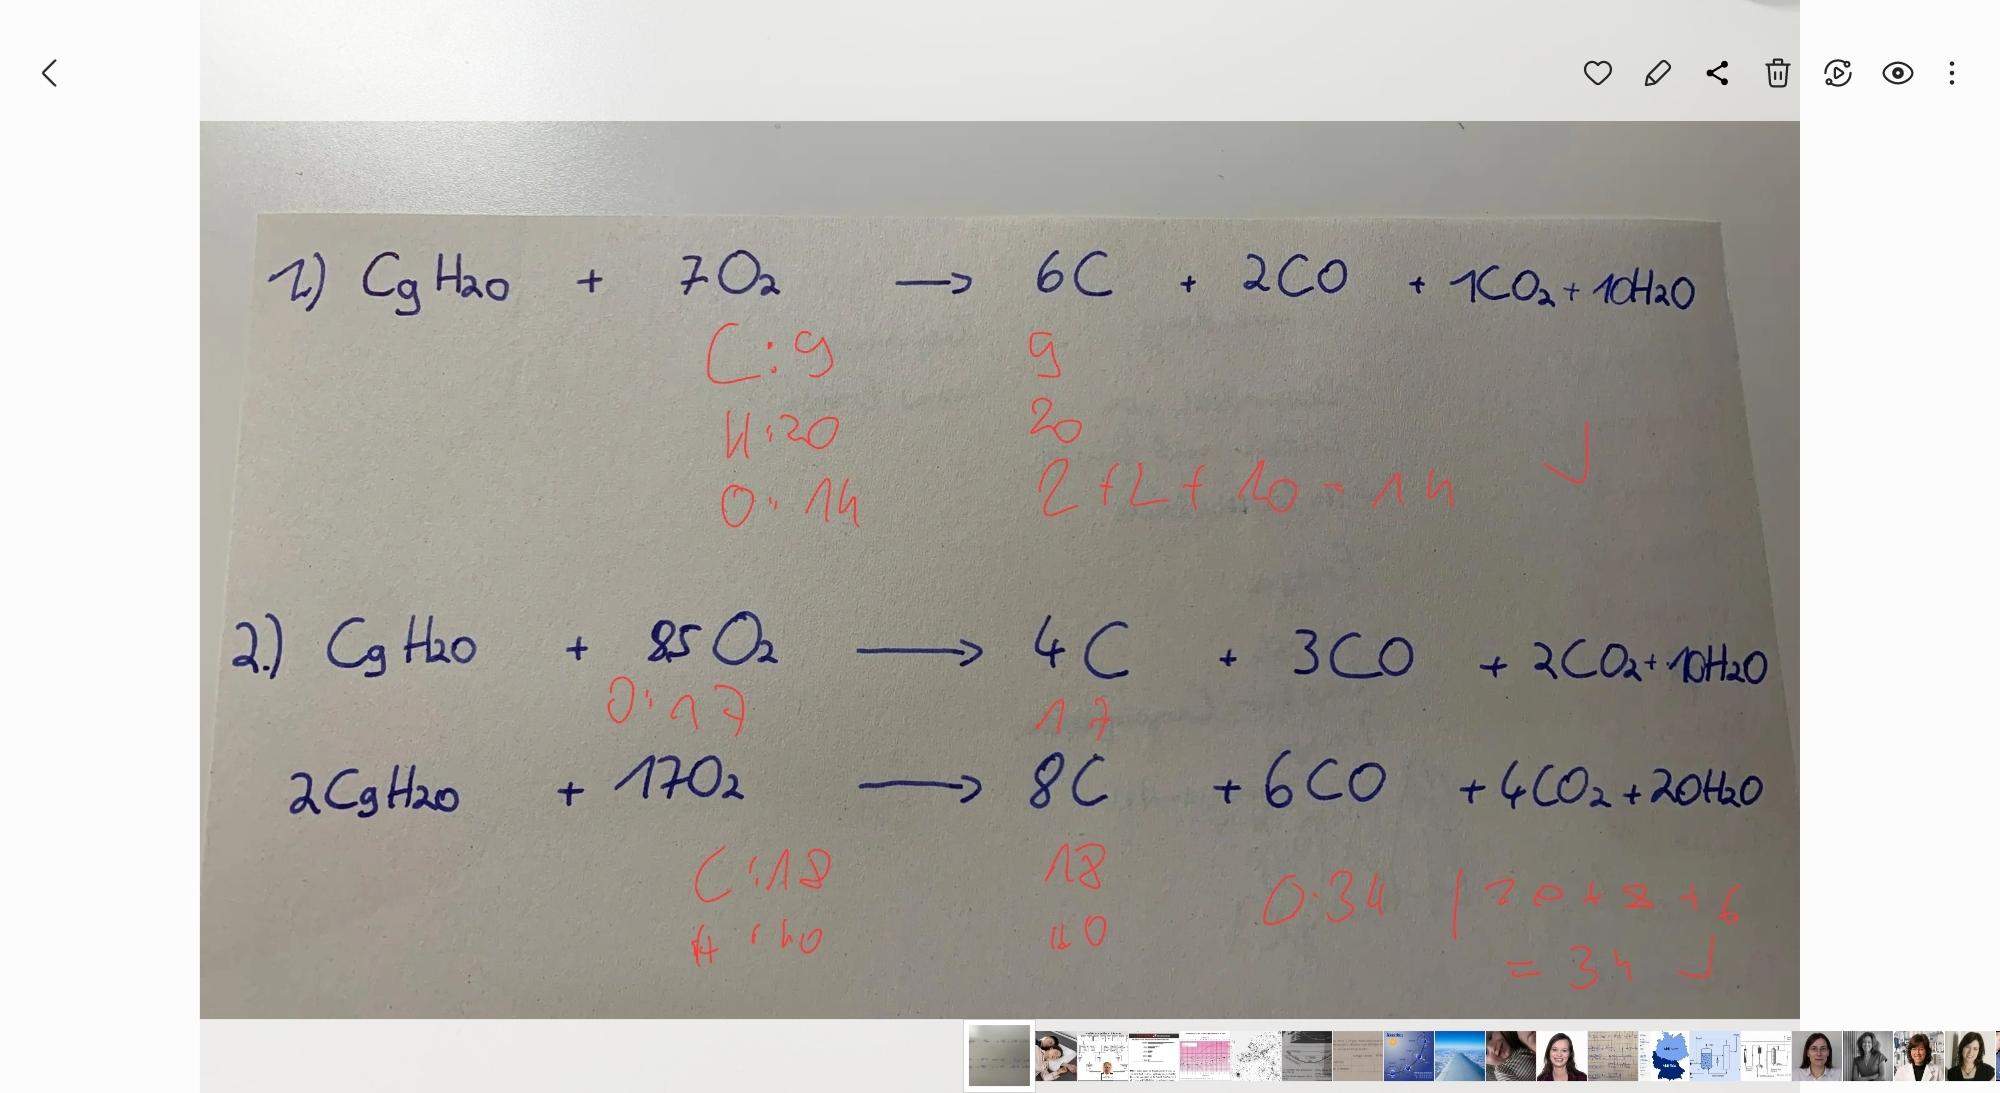 1.) C9H20 + 7O2 → 6C + 2CO + 1CO2 + 10H2O
C: 9 9
H: 20 20
O: 14 2 + 2 + 10 = 14 ✓
2.) C9H20 + 8,5 O2 → 4C + 3CO + 2CO2 + 10H2O
O: 17 17
2C9H20 + 17O2 → 8C + 6CO + 4CO2 + 20H2O
C: 18 18
H: 40 40
O: 34 | 20 + 8 + 6
= 34 ✓